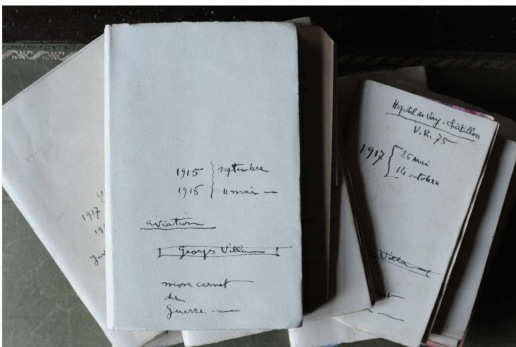 1915 } septembre
1916 } 11 mai —
aviation
Georges Villa
mon carnet
de
guerre —
1917
Hopital de Viry-Châtillon
V.R. 75
1917 { 25 mai
14 octobre
Villa